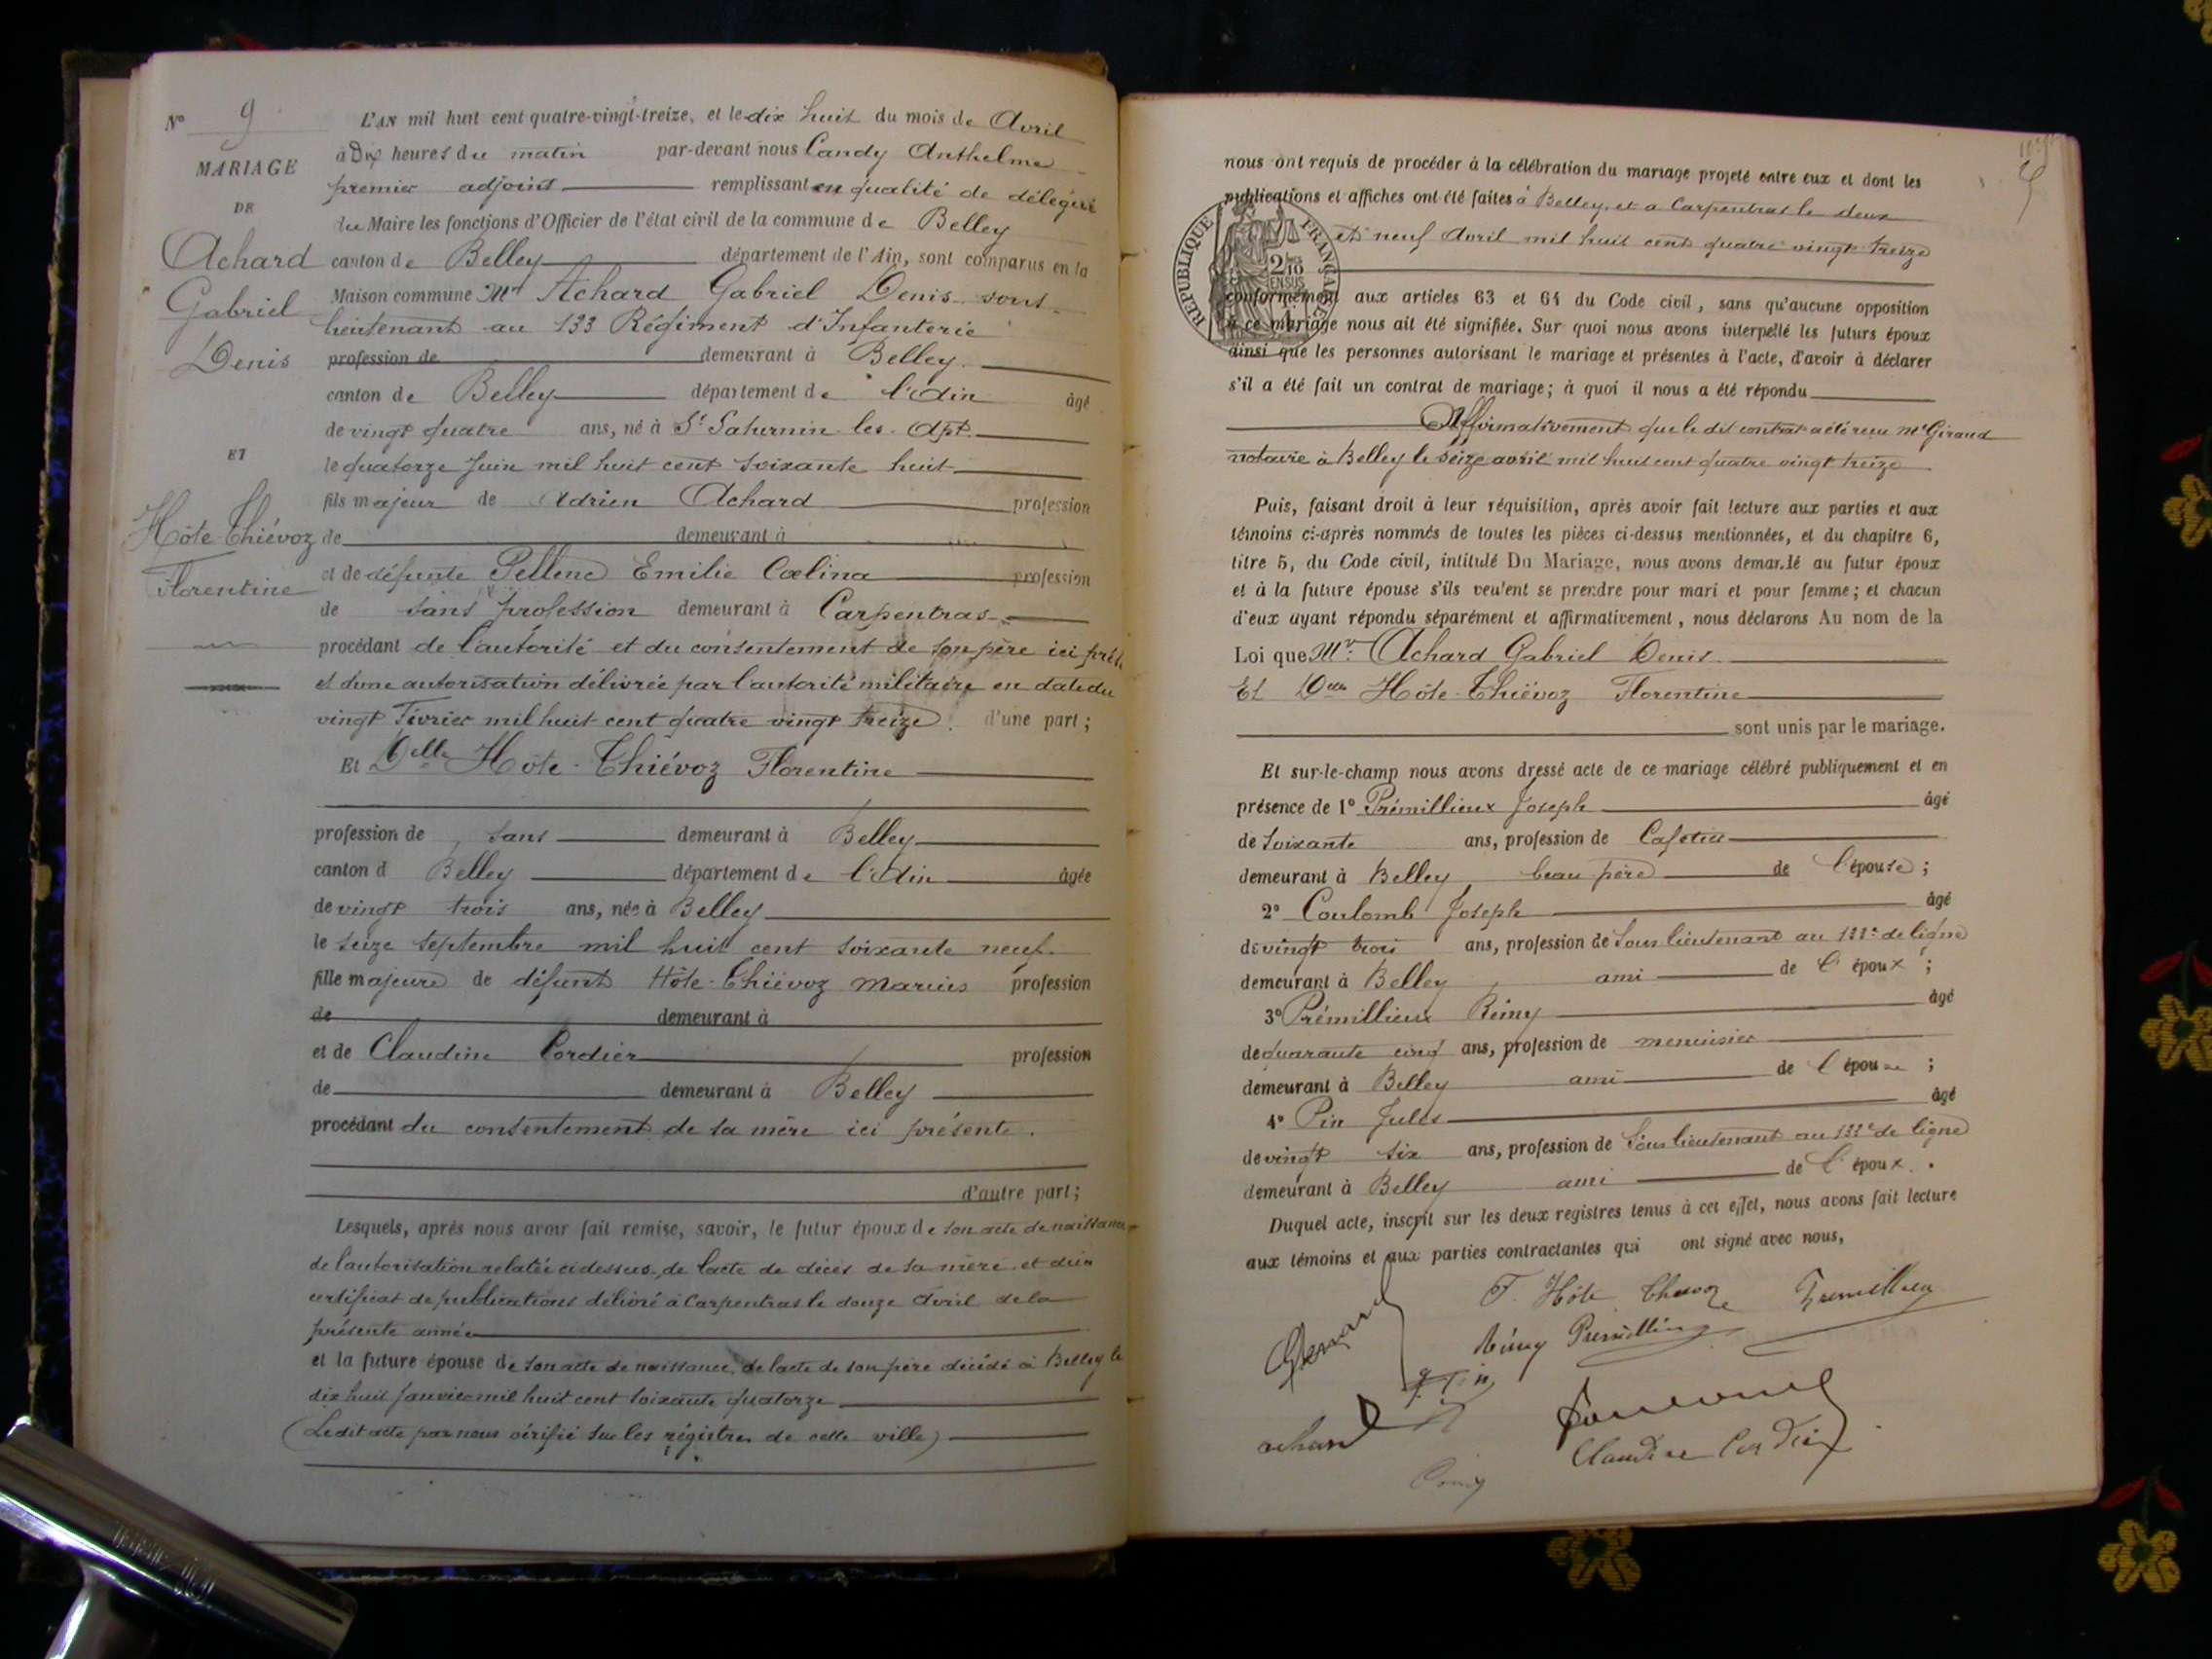 N° 9
MARIAGE
DE
Achard
Gabriel
Denis
ET
Hôte-Thiévoz
Florentine
L'AN mil huit cent quatre-vingt-treize, et le dix huit du mois de Avril
à Dix heures du matin par-devant nous Candy Anthelme
premier adjoint remplissant en qualité de délégué
du Maire les fonctions d'Officier de l'état civil de la commune de Belley
canton de Belley département de l'Ain, sont comparus en la
Maison commune Mr Achard Gabriel Denis sous
lieutenant au 133 Régiment d'Infanterie
profession de demeurant à Belley
canton de Belley département de l'Ain âgé
de vingt quatre ans, né à St Saturnin les Apt
le quatorze Juin mil huit cent soixante huit
fils majeur de Adrien Achard profession
de demeurant à
et de défunte Pellenc Emilie Cœlina profession
de sans profession demeurant à Carpentras
procédant de l'autorité et du consentement de son père ici prést
et d'une autorisation délivrée par l'autorité militaire en date du
vingt Février mil huit cent quatre vingt treize. d'une part;
Et Delle Hôte-Thiévoz Florentine
profession de sans demeurant à Belley
canton d Belley département de l'Ain âgée
de vingt trois ans, née à Belley
le seize septembre mil huit cent soixante neuf
fille majeure de défunt Hôte-Thiévoz Marius profession
de demeurant à
et de Claudine Cordier profession
de demeurant à Belley
procédant du consentement de sa mère ici présente.
d'autre part;
Lesquels, après nous avoir fait remise, savoir, le futur époux de son acte de naissance
de l'autorisation relatée ci dessus, de l'acte de décès de sa mère et d'un
certificat de publications délivré à Carpentras le douze Avril de la
présente année
et la future épouse de son acte de naissance, de l'acte de son père décédé à Belley le
dix huit Janvier mil huit cent soixante quatorze
(Ledit acte par nous vérifié sur les régistres de cette ville)
nous ont requis de procéder à la célébration du mariage projeté entre eux et dont les
publications et affiches ont été faites à Belley, et a Carpentras le deux
et neuf Avril mil huit cent quatre vingt treize
REPUBLIQUE FRANÇAISE
2/10 EN SUS
conformément aux articles 63 et 64 du Code civil, sans qu'aucune opposition
à ce mariage nous ait été signifiée. Sur quoi nous avons interpellé les futurs époux
ainsi que les personnes autorisant le mariage et présentes à l'acte, d'avoir à déclarer
s'il a été fait un contrat de mariage; à quoi il nous a été répondu
Affirmativement que le dit contrat a été reçu Me Giraud
notaire à Belley le seize avril mil huit cent quatre vingt treize
Puis, faisant droit à leur réquisition, après avoir fait lecture aux parties et aux
témoins ci-après nommés de toutes les pièces ci-dessus mentionnées, et du chapitre 6,
titre 5, du Code civil, intitulé Du Mariage, nous avons demandé au futur époux
et à la future épouse s'ils veulent se prendre pour mari et pour femme; et chacun
d'eux ayant répondu séparément et affirmativement, nous déclarons Au nom de la
Loi que Mr Achard Gabriel Denis
Et Delle Hôte-Thiévoz Florentine
sont unis par le mariage.
Et sur-le-champ nous avons dressé acte de ce mariage célébré publiquement et en
présence de 1° Prémillieux Joseph âgé
de soixante ans, profession de Cafetier
demeurant à Belley beau père de l'épouse;
2° Coulomb Joseph âgé
de vingt trois ans, profession de Sous lieutenant au 133e de ligne
demeurant à Belley ami de l'époux;
3° Prémillieux Rémy âgé
de quarante cinq ans, profession de menuisier
demeurant à Belley ami de l'épouse;
4° Pin Jules âgé
de vingt six ans, profession de Sous lieutenant au 133e de ligne
demeurant à Belley ami de l'époux.
Duquel acte, inscrit sur les deux registres tenus à cet effet, nous avons fait lecture
aux témoins et aux parties contractantes qui ont signé avec nous,
F. Hôte Thievoz Premillieux
Rémy Premillieux
J Pin
achard
Claudine Cordier